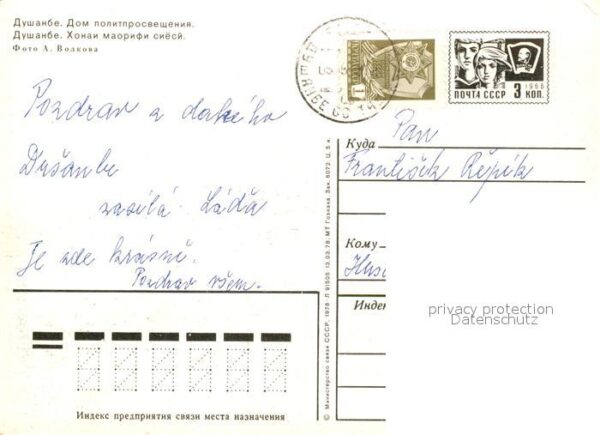 Душанбе. Дом политпросвещения.
Душанбе. Хонаи маорифи сиёсӣ.
Фото А. Волкова
Pozdrav z dalekého
Dušanbe
zasílá Láďa
Je zde krásně.
Pozdrav všem.
1966
ПОЧТА СССР 3 КОП.
Куда
Pan
František Řepík
Кому
Индек
privacy protection
Datenschutz
© Министерство связи СССР, 1978
13.03.78. МТ Гознака. Зак. 6073. Ц. 5 к.
Индекс предприятия связи места назначения